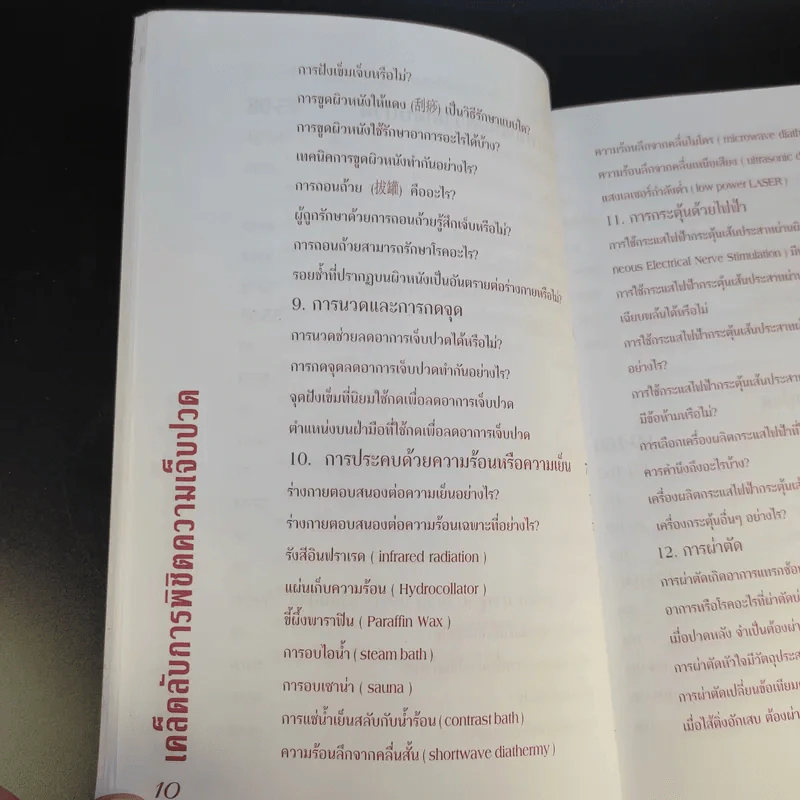 การฝังเข็มเจ็บหรือไม่?
การขูดผิวหนังให้แดง (刮痧) เป็นวิธีรักษาแบบใด?
การขูดผิวหนังใช้รักษาอาการอะไรได้บ้าง?
เทคนิคการขูดผิวหนังทำกันอย่างไร?
การถอนถ้วย (拔罐) คืออะไร?
ผู้ถูกรักษาด้วยการถอนถ้วยรู้สึกเจ็บหรือไม่?
การถอนถ้วยสามารถรักษาโรคอะไร?
รอยช้ำที่ปรากฏบนผิวหนังเป็นอันตรายต่อร่างกายหรือไม่?
9. การนวดและการกดจุด
การนวดช่วยลดอาการเจ็บปวดได้หรือไม่?
การกดจุดลดอาการเจ็บปวดทำกันอย่างไร?
จุดฝังเข็มที่นิยมใช้กดเพื่อลดอาการเจ็บปวด
ตำแหน่งบนฝ่ามือที่ใช้กดเพื่อลดอาการเจ็บปวด
10. การประคบด้วยความร้อนหรือความเย็น
ร่างกายตอบสนองต่อความเย็นอย่างไร?
ร่างกายตอบสนองต่อความร้อนเฉพาะที่อย่างไร?
รังสีอินฟราเรด ( infrared radiation )
แผ่นเก็บความร้อน ( Hydrocollator )
ขี้ผึ้งพาราฟิน ( Paraffin Wax )
การอบไอน้ำ ( steam bath )
การอบเซาน่า ( sauna )
การแช่น้ำเย็นสลับกับน้ำร้อน ( contrast bath )
ความร้อนลึกจากคลื่นสั้น ( shortwave diathermy )
เคล็ดลับการพิชิตความเจ็บปวด
10
ความร้อนลึกจากคลื่นไมโคร ( microwave diathe
ความร้อนลึกจากคลื่นเหนือเสียง ( ultrasonic d
แสงเลเซอร์กำลังต่ำ ( low power LASER )
11. การกระตุ้นด้วยไฟฟ้า
การใช้กระแสไฟฟ้ากระตุ้นเส้นประสาทผ่านผิ
neous Electrical Nerve Stimulation ) มี
การใช้กระแสไฟฟ้ากระตุ้นเส้นประสาทผ่าน
เฉียบพลันได้หรือไม่
การใช้กระแสไฟฟ้ากระตุ้นเส้นประสาทผ่า
อย่างไร?
การใช้กระแสไฟฟ้ากระตุ้นเส้นประสาท
มีข้อห้ามหรือไม่?
การเลือกเครื่องผลิตกระแสไฟฟ้าที่
ควรคำนึงถึงอะไรบ้าง?
เครื่องผลิตกระแสไฟฟ้ากระตุ้นเส้
เครื่องกระตุ้นอื่นๆ อย่างไร?
12. การผ่าตัด
การผ่าตัดเกิดอาการแทรกซ้อน
อาการหรือโรคอะไรที่ผ่าตัดบ่
เมื่อปวดหลัง จำเป็นต้องผ่า
การผ่าตัดหัวใจมีวัตถุประส
การผ่าตัดเปลี่ยนข้อเทียม
เมื่อไส้ติ่งอักเสบ ต้องผ่า